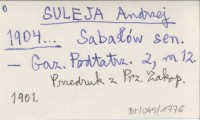 SULEJA Andrzej
1904... Sabałów sen.
– Gaz. Podtatrz. 2, nr 12.
Przedruk z Prz. Zakop.
1901.
BJ/049/1776